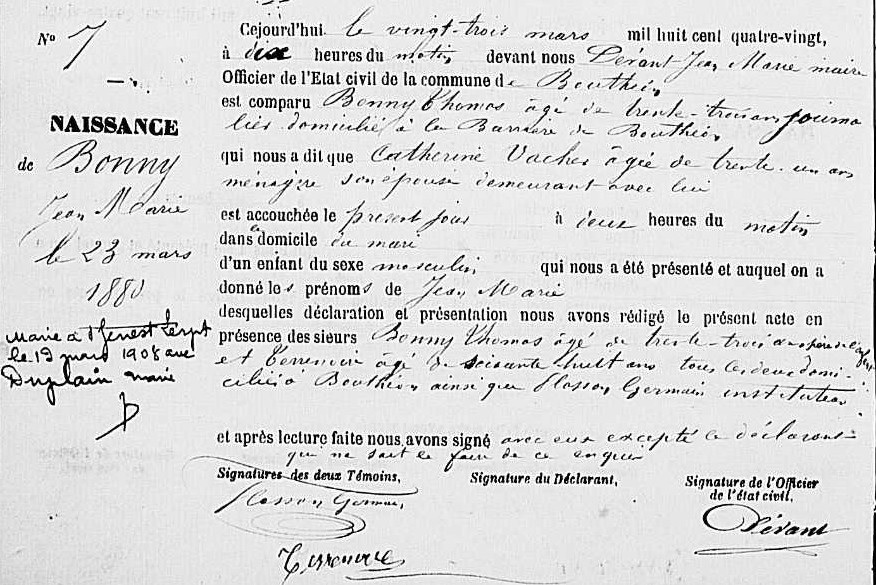 N° 7
NAISSANCE
de Bonny
Jean Marie
le 23 mars
1880
Marié à St Genest Lerpt
le 19 mars 1908 avec
Duplain Marie
Cejourd'hui le vingt-trois mars mil huit cent quatre-vingt,
à dix heures du matin devant nous Dévant Jean Marie maire
Officier de l'Etat civil de la commune de Bouthéon
est comparu Bonny Thomas âgé de trente-trois ans journa
lier domicilié à la Barrière de Bouthéon
qui nous a dit que Catherine Vacher âgée de trente-un ans
ménagère son épouse demeurant avec lui
est accouchée le présent jour à deux heures du matin
dans le domicile du mari
d'un enfant du sexe masculin qui nous a été présenté et auquel on a
donné les prénoms de Jean Marie
desquelles déclaration et présentation nous avons rédigé le présent acte en
présence des sieurs Bonny Thomas âgé de trente-trois ans père de l'enfant
et Terrenoire âgé de soixante huit ans tous les deux domi-
ciliés à Bouthéon ainsi que Flosson Germain instituteur
et après lecture faite nous avons signé avec eux excepté le déclarant
qui ne sait le faire de ce enquis
Signatures des deux Témoins, Signature du Déclarant, Signature de l'Officier
de l'état civil,
Flosson Germain
Dévant
Terrenoire